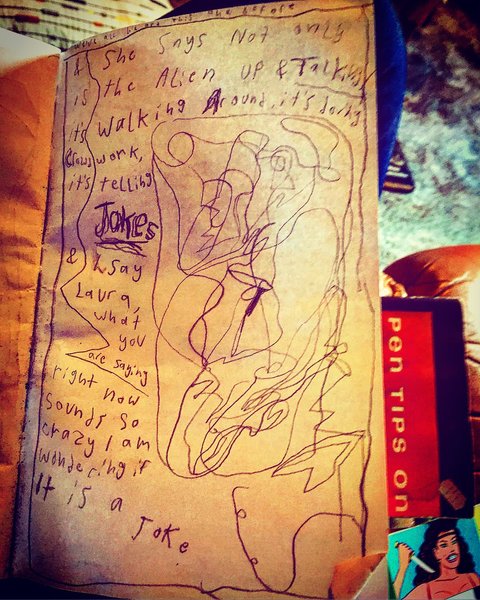 we've all heard this one before
& She Says Not only
is the Alien UP & Talking
it's walking Around, it's doing
Clown work,
it's telling
Jokes
& I say
Laura,
what
you
are saying
right now
Sounds So
crazy I am
wondering if
It is a
Joke
Pen TIPS ON